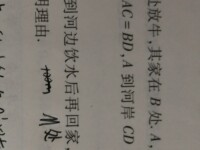 处放牛,其家在 B 处. A,
AC=BD, A 到河岸 CD
到河边饮水后再回家,
明理由.
处